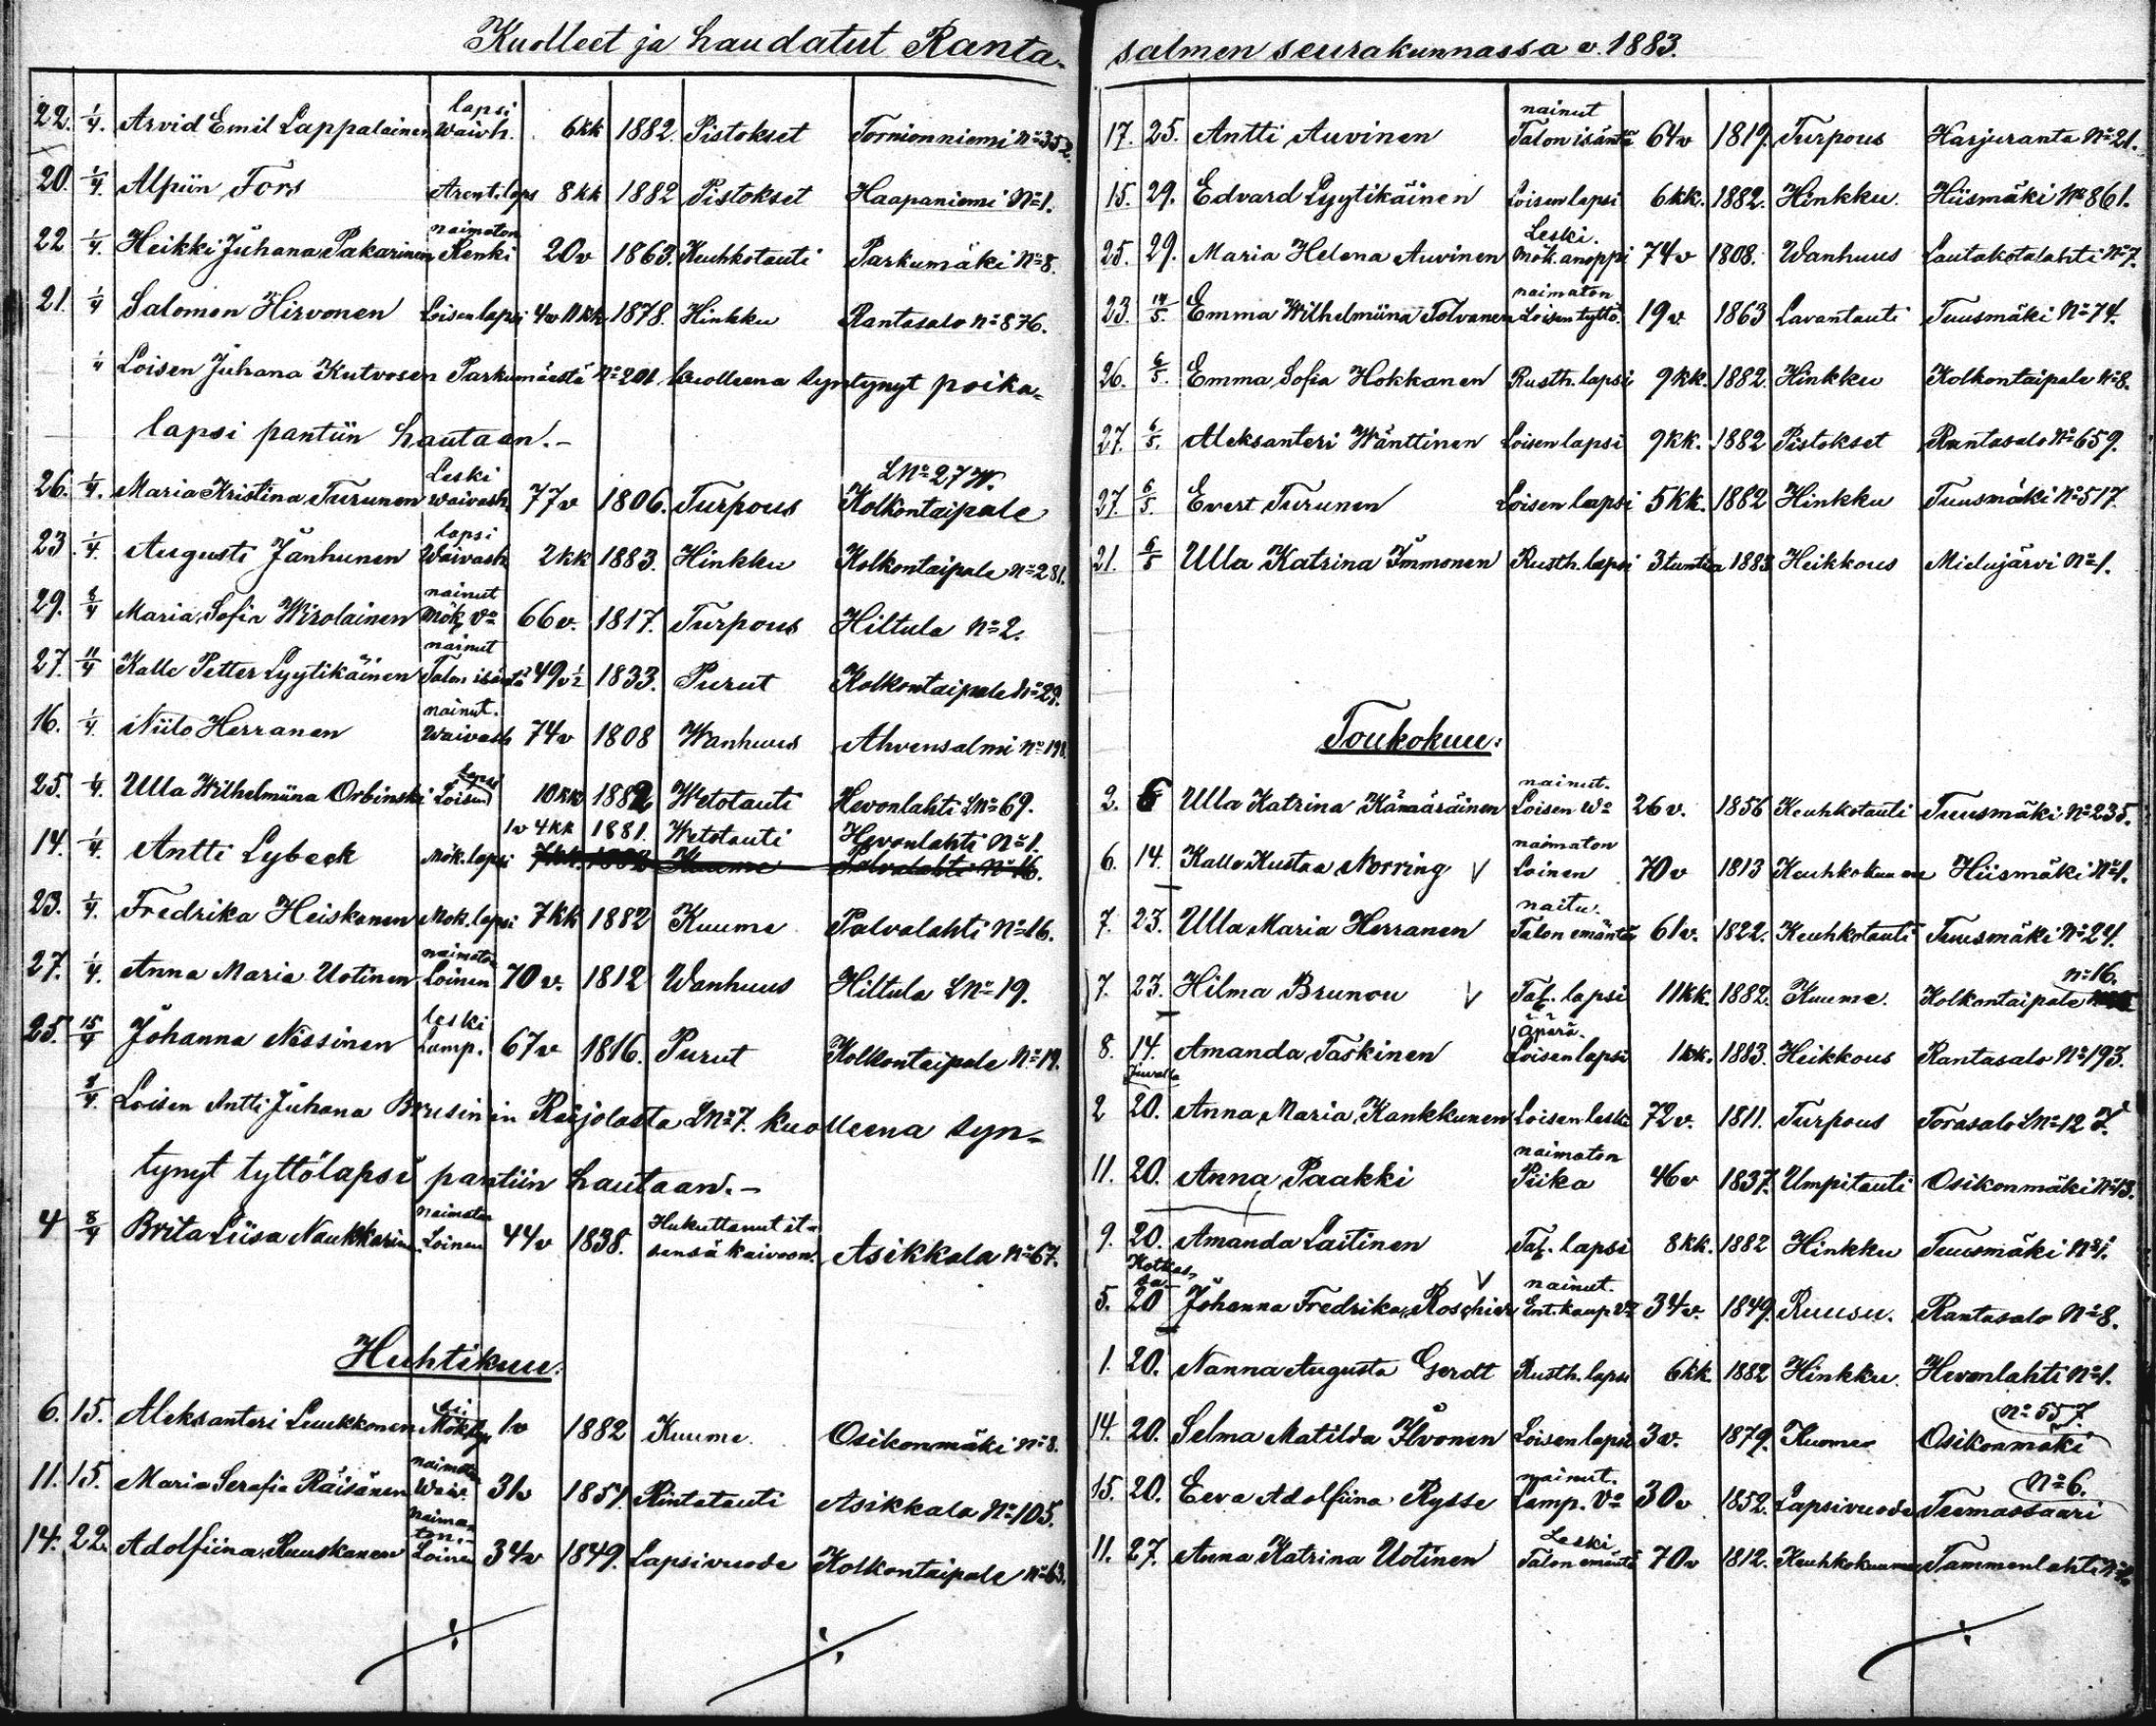 Kuolleet ja haudatut Ranta-
22. 1/4. Arvid Emil Lappalainen lapsi Waivh. 6kk 1882. Pistokset Tornionniemi No 352.
20. 1/4. Alpiin Fors Arent. laps 8kk 1882 Pistokset Haapaniemi No 1.
22 1/4. Heikki Juhana Pakarinen naimaton Renki 20v 1863. Keuhkotauti Parkumäki No 8.
21. 1/4 Salomon Hirvonen Loisen lapsi 4v 11kk 1878. Hinkku Rantasalo No 876.
Loisen Juhana Kutvosen Parkumäestä No 201 kuolleena syntynyt poika-
lapsi pantiin hautaan.-
26. 1/4. Maria Kristina Turunen Leski waivash. 77v 1806. Turpous LNo 27 W. Kolkontaipale
23. 1/4. Augusti Janhunen lapsi Waivash 2kk 1883. Hinkku Kolkontaipale No 281.
29. 8/4 Maria Sofia Wirolainen nainut Mök. vo 66v. 1817. Turpous Hiltula No 2.
27. 11/4 Kalle Petter Lyytikäinen nainut Talon isäntä 49v 1/2 1833. Purut Kolkontaipale No 29.
16. 1/4 Niilo Herranen nainut. Waivash 74v 1808 Wanhuus Ahvensalmi No 198.
25. 1/4. Ulla Wilhelmiina Orbinski lapsi Loisen 10kk 1882 Wetotauti Hevonlahti LNo 69.
14. 1/4. Antti Lybeck Mök. lapsi 1v 4kk 1881. Wetotauti Hevonlahti No 1.
7kk. 1882 Kuume Palvalahti No 16.
23. 1/4. Fredrika Heiskanen Mök. lapsi 7kk 1882 Kuume Palvalahti No 16.
27. 1/4. Anna Maria Uotinen naimaton Loinen 70v. 1812 Wanhuus Hiltula LNo 19.
25. 15/4 Johanna Nissinen leski Lamp. 67v 1816. Purut Kolkontaipale No 19.
8/4. Loisen Antti Juhana Brusinin Reijolasta LNo 7. kuolleena syn-
tynyt tyttölapsi pantiin hautaan.-
4 8/4 Brita Liisa Naukkarinen naimaton Loinen 44v 1838. Hukuttanut it- sensä kaivoon. Asikkala No 67.
Huhtikuu:
6. 15. Aleksanteri Luukkonen Mök. lapsi 1v 1882 Kuume. Osikonmäki No 8.
11. 15. Maria Serafia Räisänen naimaton Waiv. 31v 1851. Rintatauti Asikkala No 105.
14. 22. Adolfiina Ruuskanen naimaton.- Loinen 34v 1849. Lapsivuode Kolkontaipale No 63.
salmen seurakunnassa v. 1883.
17. 25. Antti Auvinen nainut Talon isäntä 64v 1819. Turpous Harjuranta No 21.
15. 29. Edvard Lyytikäinen Loisen lapsi 6kk. 1882. Hinkku. Hiismäki No 861.
25. 29. Maria Helena Auvinen Leski. Mök. anoppi 74v 1808. Wanhuus Lautakotalahti No 7.
23. 14/5. Emma Wilhelmiina Tolvanen naimaton Loisen tyttö. 19v. 1863 Lavantauti Tuusmäki No 74.
26. 6/5. Emma Sofia Hokkanen Rusth. lapsi 9kk. 1882. Hinkku Kolkontaipale No 8.
27. 6/5. Aleksanteri Wänttinen Loisen lapsi 9kk. 1882 Pistokset Rantasalo No 659.
27. 6/5. Evert Turunen Loisen lapsi 5kk. 1882 Hinkku Tuusmäki No 517.
21. 6/5 Ulla Katrina Immonen Rusth. lapsi 3 tuntia 1883 Heikkous Mielujärvi No 1.
Toukokuu:
2. 6 Ulla Katrina Kämäräinen nainut. Loisen Wo 26v. 1856 Keuhkotauti Tuusmäki No 235.
6. 14. Kalle Kustaa Norring V naimaton Loinen 70v 1813 Keuhkokuume Hiismäki No 1.
7. 23. Ulla Maria Herranen naitu. Talon emäntä 61v. 1822. Keuhkotauti Tuusmäki No 24.
7. 23. Hilma Brunou V Tal. lapsi 11kk. 1882. Kuume. Kolkontaipale No 16.
8. 14. Amanda Taskinen Äpärä. Loisen lapsi 1kk. 1883. Heikkous Rantasalo No 193.
Juvalla
2 20. Anna Maria Kankkunen Loisen leski 72v. 1811. Turpous Torasalo LNo 12
11. 20. Anna Paakki naimaton Piika 46v 1837. Umpitauti Osikonmäki No 13.
9. 20. Amanda Laitinen Tal. lapsi 8kk. 1882 Hinkku Tuusmäki No 1.
Kotkas- sa-
5. 20 Johanna Fredrika Roschier V nainut. Ent. kaup. vo 34v. 1849. Ruusu. Rantasalo No 8.
1. 20. Nanna Augusta Gerdt Rusth. lapsi 6kk. 1882 Hinkku. Hevonlahti No 1.
14. 20. Selma Matilda Ilvonen Loisen lapsi 3v. 1879. Kuume Osikonmäki No 557.
15. 20. Eeva Adolfiina Rysse nainut. Lamp. Vo 30v 1852. Lapsivuode Teemassaari No 6.
11. 27. Anna Katrina Uotinen Leski Talon emäntä 70v 1812. Keuhkokuume Tammenlahti